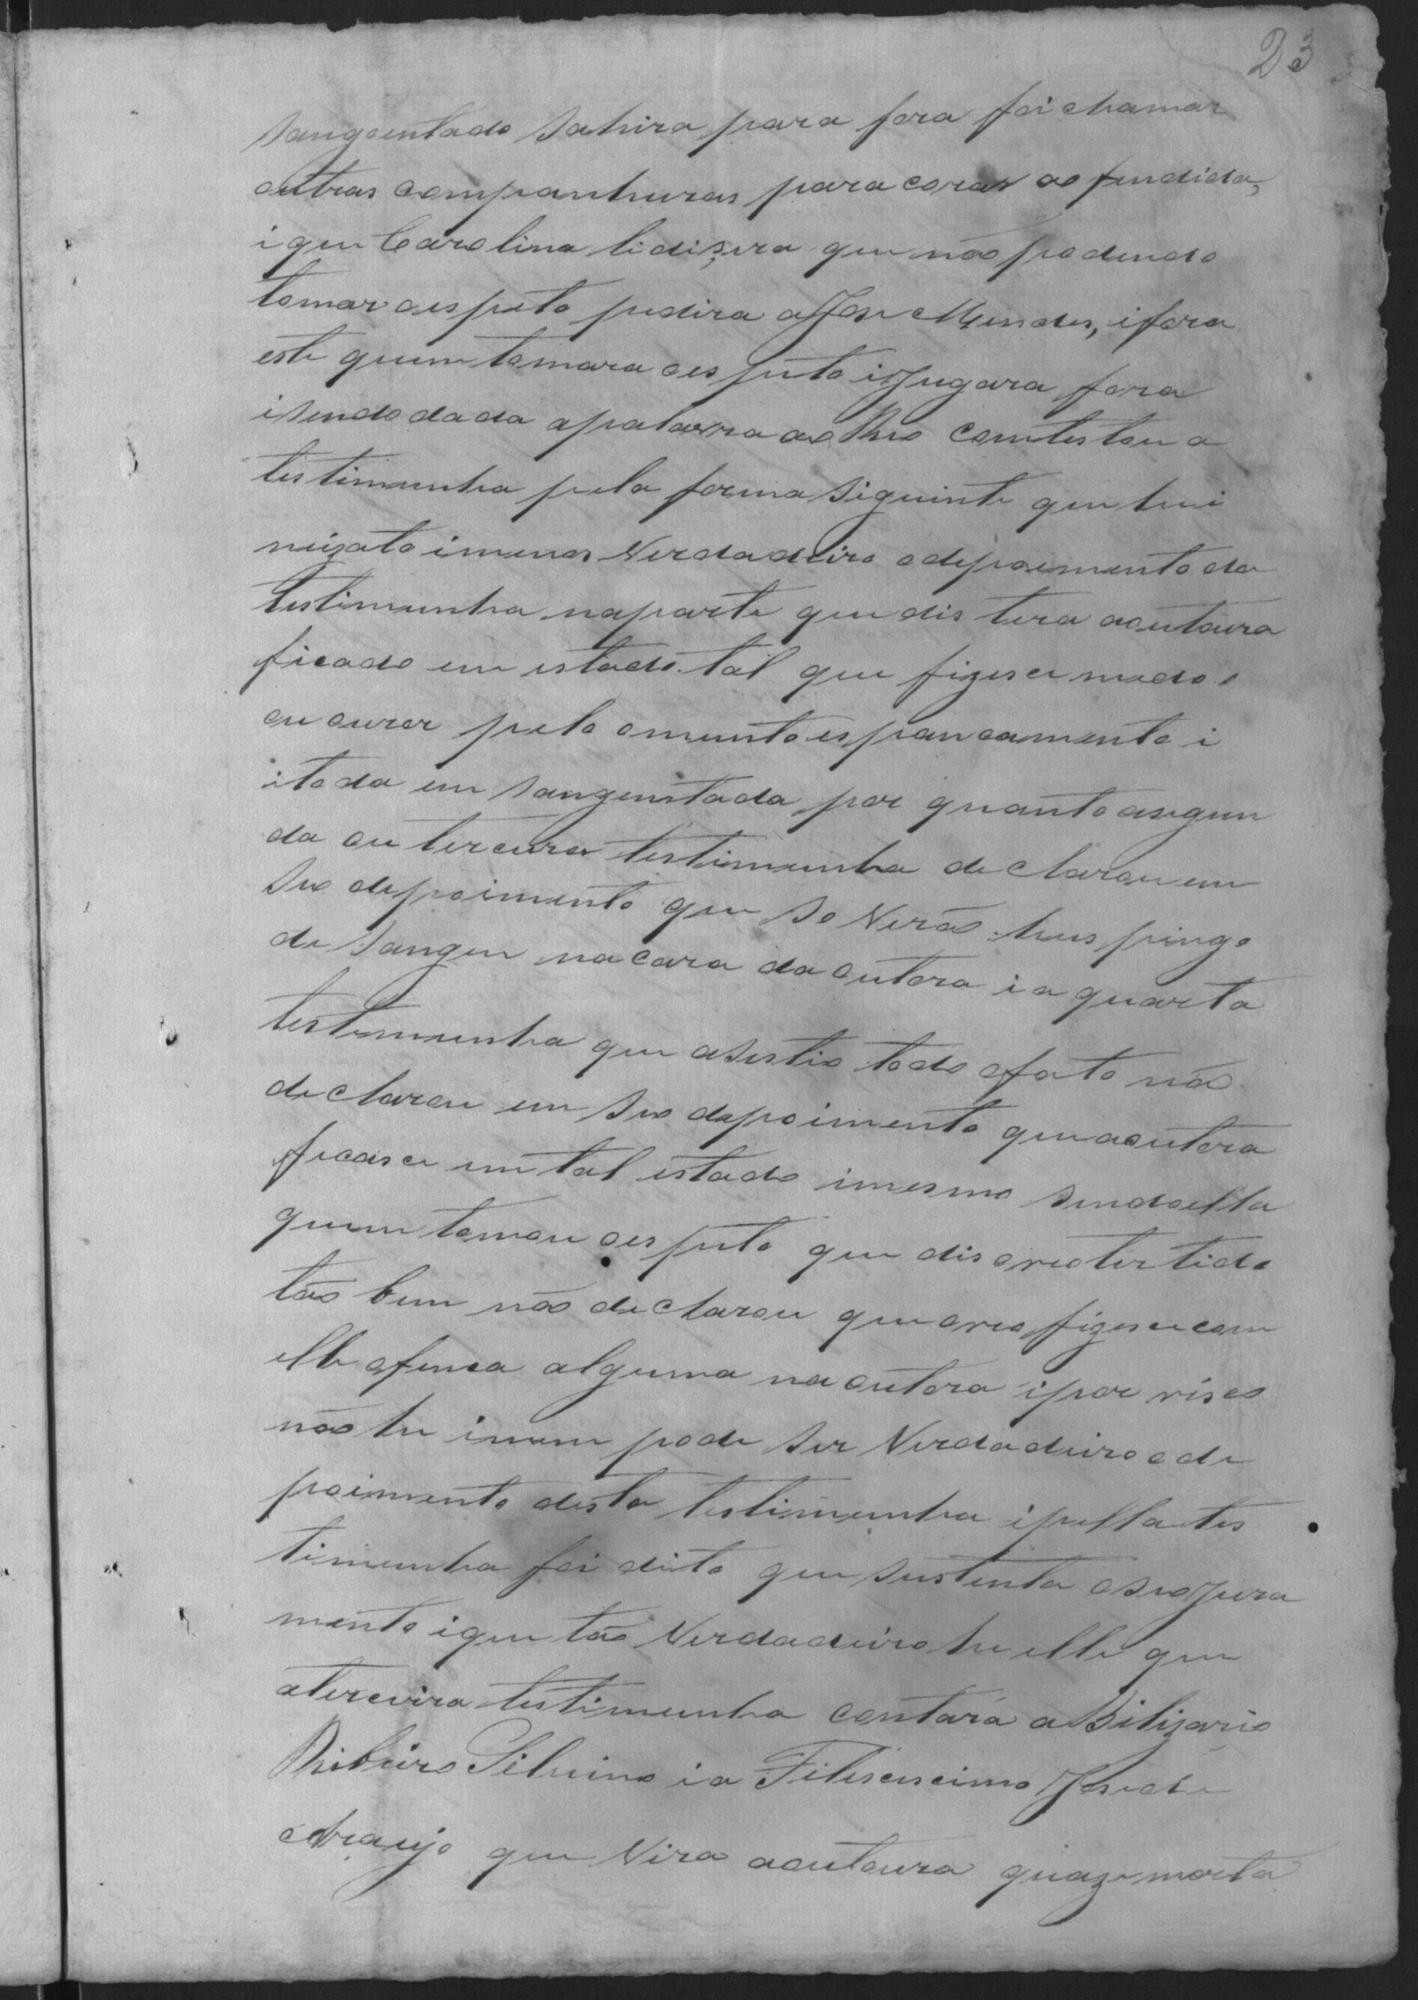 23
sangoentado sahira para fora foi chamar
outras companhuras para coras ao fendida,
i que Carolina li disera que não podendo
tomar o espeto pedira a Jose Mendes, i fora
este quem tomara o espeto i jugara fora
i sendo dada a palavra ao Reo contestou a
testimunha pela forma siguinte que he i
neizato i menos Verdadeiro o depoimento da
testimunha na parte que dis tera a outoura
ficado em estado tal que fizese medo
ou curer pelo omento espancamento i
i toda em sanguentada por quanto a segun
da ou terceira testimunha declarou em
seo depoimento que so Verão tres pingo
de sangue na cara da outora i a quarta
testimunha que asestio todo o fato não
declarou em seo depoimento que a outora
ficase em tal estado i mesmo sendo ella
quem tomou o espeto que dis o reo ter tido
tão bem não declarou que o reo fizese com
elle ofenca alguma na outora i por riso
não he i nem pode ser Verdadeiro o de
poimento desta testimunha i pella tes
timunha foi dito que sustenta o seo jura
mento i que tão Verdadeiro he elle que
a terceira testimunha contara a Bilizario
Ribeiro Silvino i a Filisiscimo Jose de
Araujo que Vira a outoura quaze morta